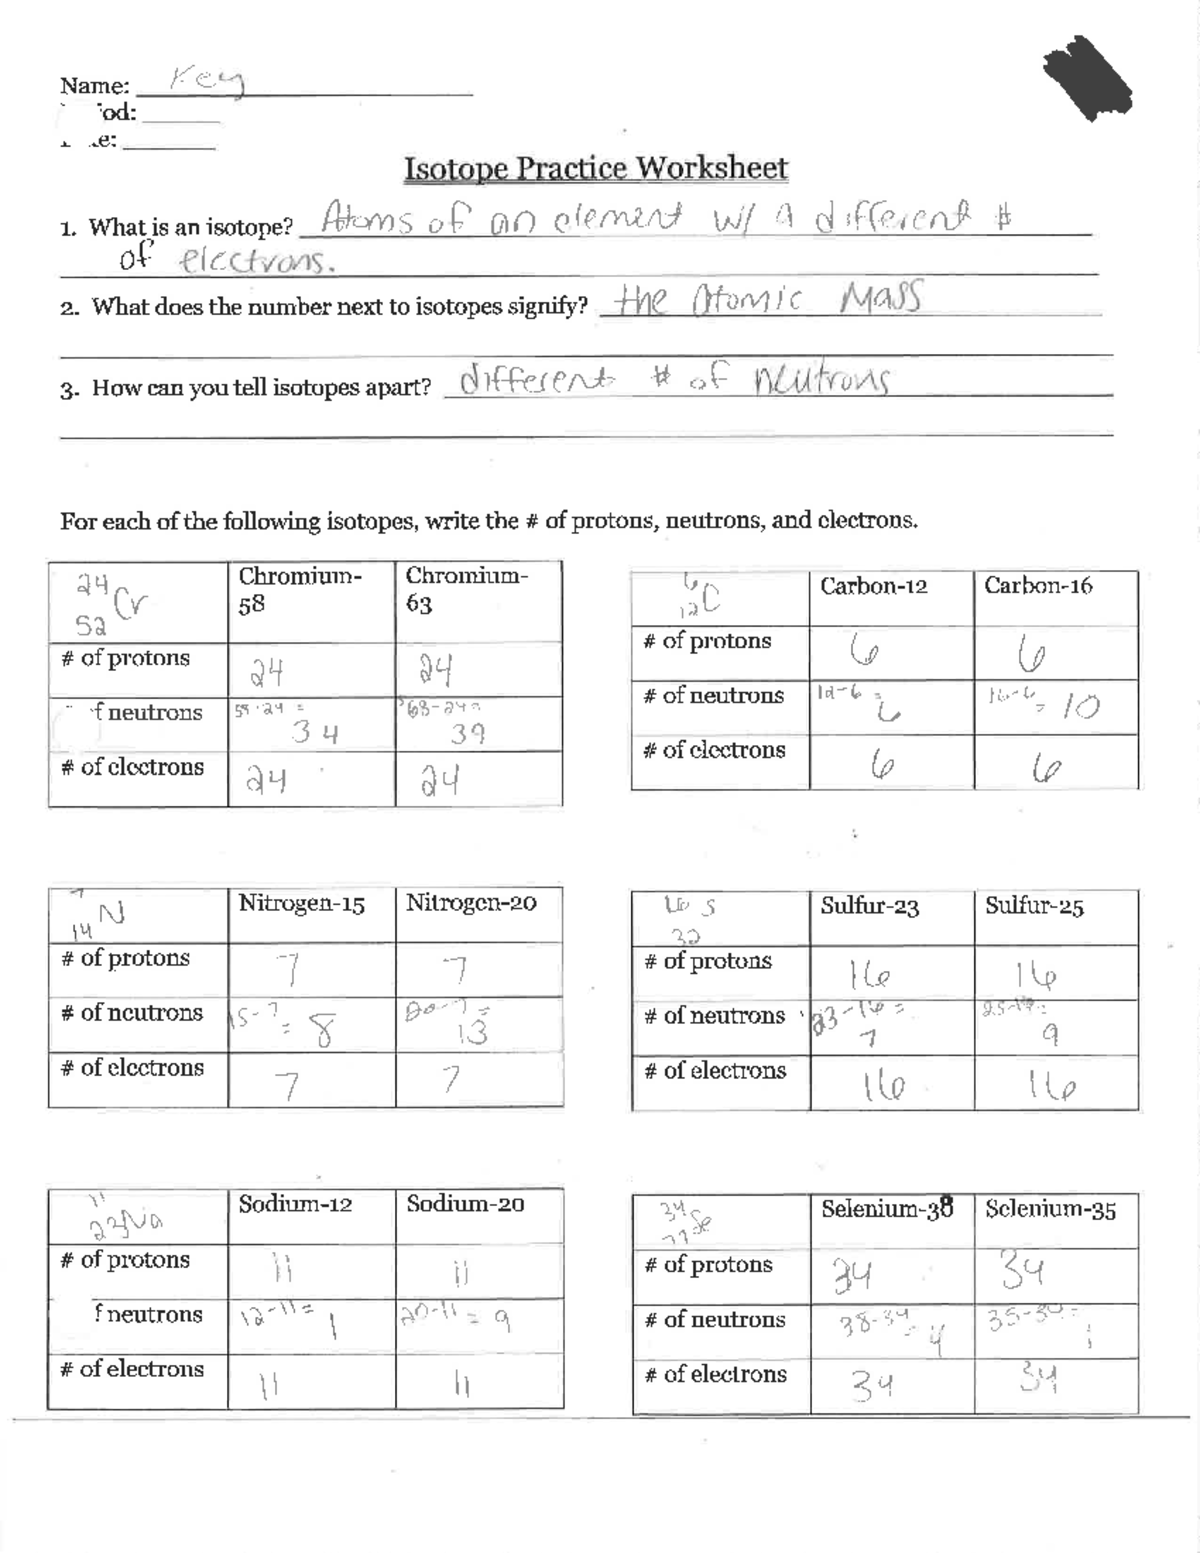 Name: Key
iod:
e:
Isotope Practice Worksheet
1. What is an isotope? Atoms of an element w/ a different #
of electrons.
2. What does the number next to isotopes signify? the Atomic Mass
3. How can you tell isotopes apart? different # of neutrons
For each of the following isotopes, write the # of protons, neutrons, and electrons.
24 Cr 52 Chromium-58 Chromium-63
# of protons 24 24
f neutrons 58-24= 34 63-24= 39
# of electrons 24 24
6 C 12 Carbon-12 Carbon-16
# of protons 6 6
# of neutrons 12-6= 6 16-6= 10
# of electrons 6 6
7 N 14 Nitrogen-15 Nitrogen-20
# of protons 7 7
# of neutrons 15-7= 8 20-7= 13
# of electrons 7 7
16 S 32 Sulfur-23 Sulfur-25
# of protons 16 16
# of neutrons 23-16= 7 25-16= 9
# of electrons 16 16
11 23 Na Sodium-12 Sodium-20
# of protons 11 11
f neutrons 12-11= 1 20-11= 9
# of electrons 11 11
34 Se 79 Selenium-38 Selenium-35
# of protons 34 34
# of neutrons 38-34= 4 35-34= 1
# of electrons 34 34